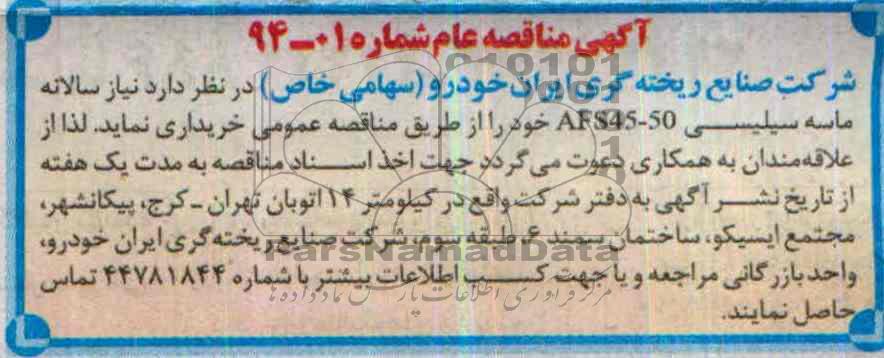 آگهی مناقصه عام شماره ۰۱-۹۴
شرکت صنایع ریخته گری ایران خودرو (سهامی خاص) در نظر دارد نیاز سالانه
ماسه سیلیسی AFS45-50 خود را از طریق مناقصه عمومی خریداری نماید. لذا از
علاقه‌مندان به همکاری دعوت می گردد جهت اخذ اسناد مناقصه به مدت یک هفته
از تاریخ نشر آگهی به دفتر شرکت واقع در کیلومتر ۱۴ اتوبان تهران - کرج، پیکانشهر،
مجتمع ایسیکو، ساختمان سمند ۶، طبقه سوم، شرکت صنایع ریخته گری ایران خودرو،
ParsNamadData
واحد بازرگانی مراجعه و یا جهت کسب اطلاعات بیشتر با شماره ۴۴۷۸۱۸۴۴ تماس
مرکز فرآوری اطلاعات پارس نماد داده ها
حاصل نمایند.